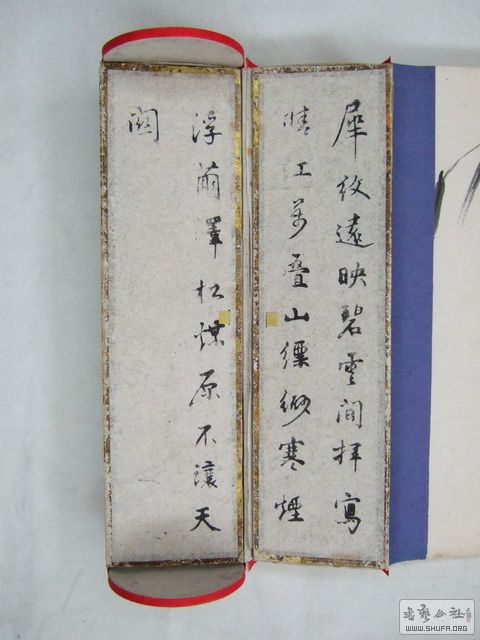 犀紋遠映碧雲間寫
晴江萬疊山縹緲寒煙
浮澤松煤原不讓天
關
書藝公社
WWW.SHUFA.ORG